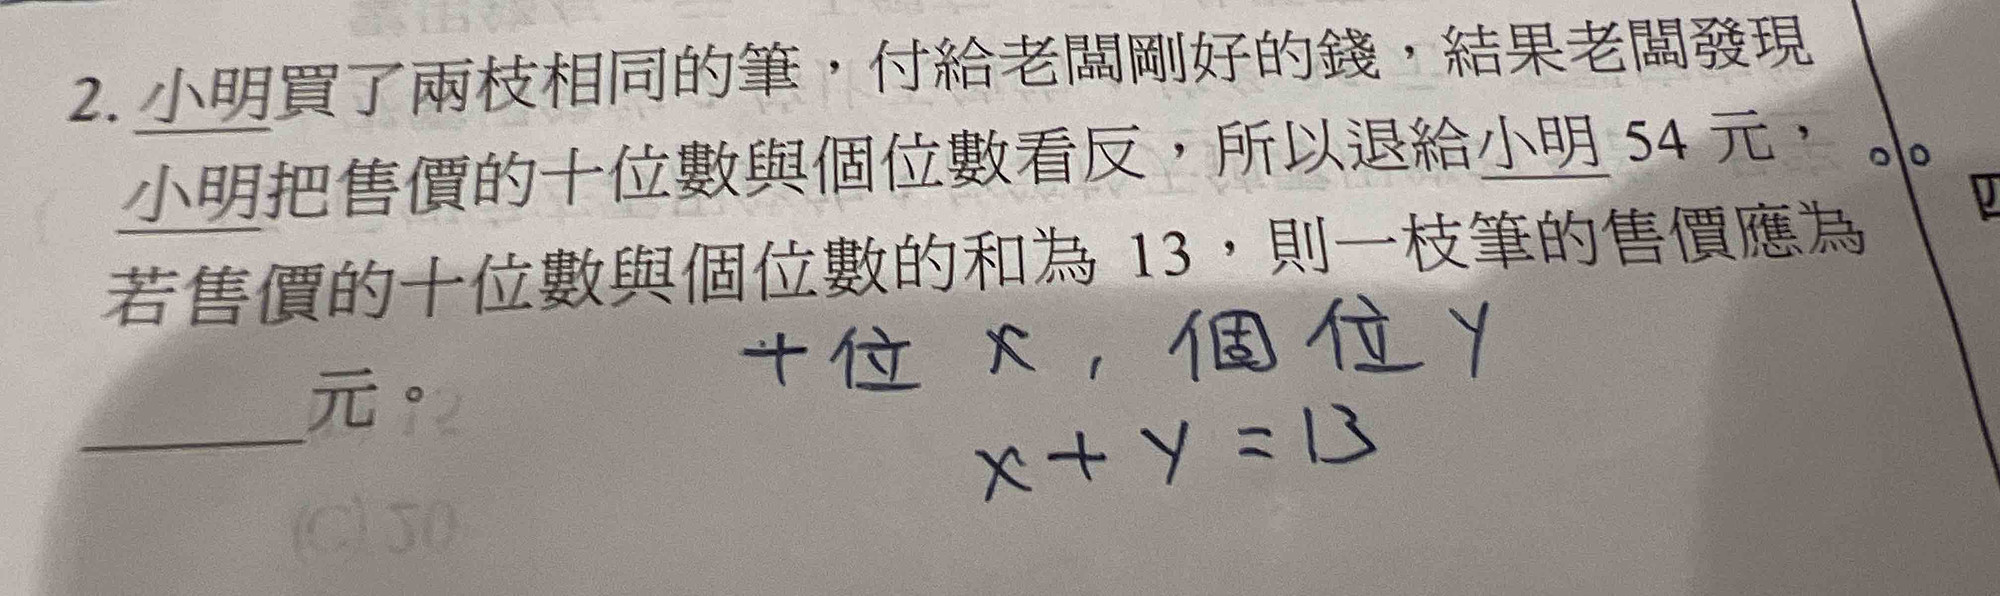 2. 小明買了兩枝相同的筆，付給老闆剛好的錢，結果老闆發現
小明把售價的十位數與個位數看反，所以退給小明 54 元，
若售價的十位數與個位數的和為 13，則一枝筆的售價應為
＿＿＿元。
十位 x , 個位 y
x + y = 13
(C) 20